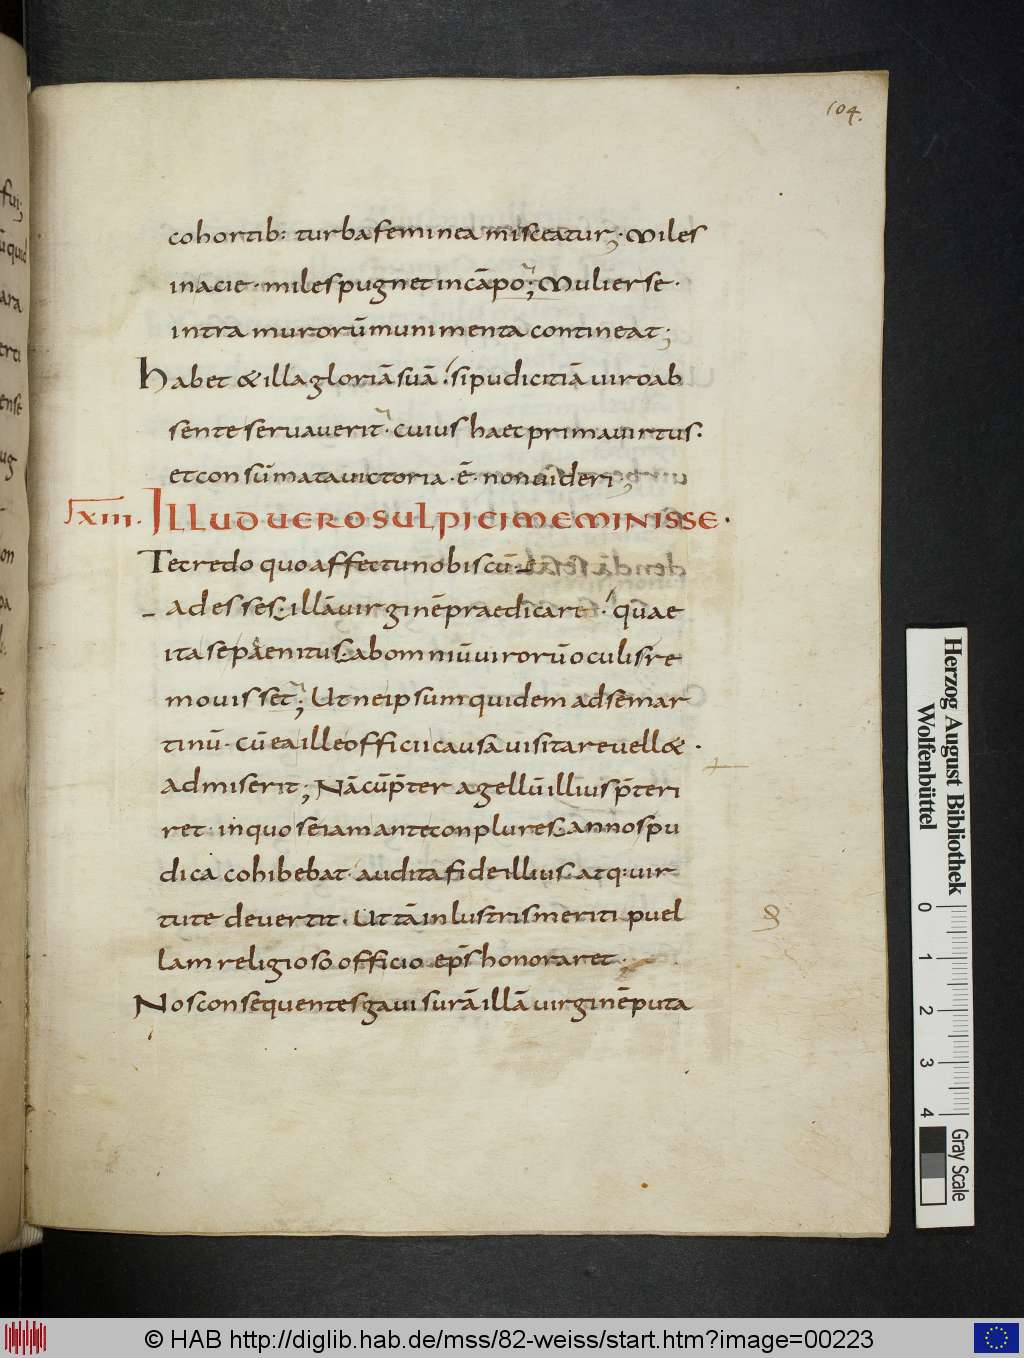 104.
cohortib: turba feminea misceatur; Miles
in acie · miles pugnet in cāpo; Mulier se ·
intra murorū munimenta contineat;
Habet & illa gloriā suā · si pudicitiā uiro ab
sente servaverit · cuius haec prima uirtus ·
et consūmata uictoria · ē · non uideri;
XIII. ILLUD UERO SULPICI MEMINISSE ·
Te credo quo affectu nobiscū
adesses · illā uirginē praedicare · quae
ita se paenitus ab omniū uirorū oculis re
mouisset; Ut ne ipsum quidem ad se mar
tinū · cū ea ille officii causa uisitare uell& ·
admiserit; Nā cū p̄ter agellū illius p̄teri
ret · in quo se iam ante conplures annos pu
dica cohibebat · audita fide illius atq: uir
tute devertit · Ut tā inlustris meriti puel
lam religioso officio ep̄s honoraret ·
Nos consequentes gauisurā illā uirginē puta
Herzog August Bibliothek
Wolfenbüttel
0 1 2 3 4
Gray Scale
© HAB http://diglib.hab.de/mss/82-weiss/start.htm?image=00223